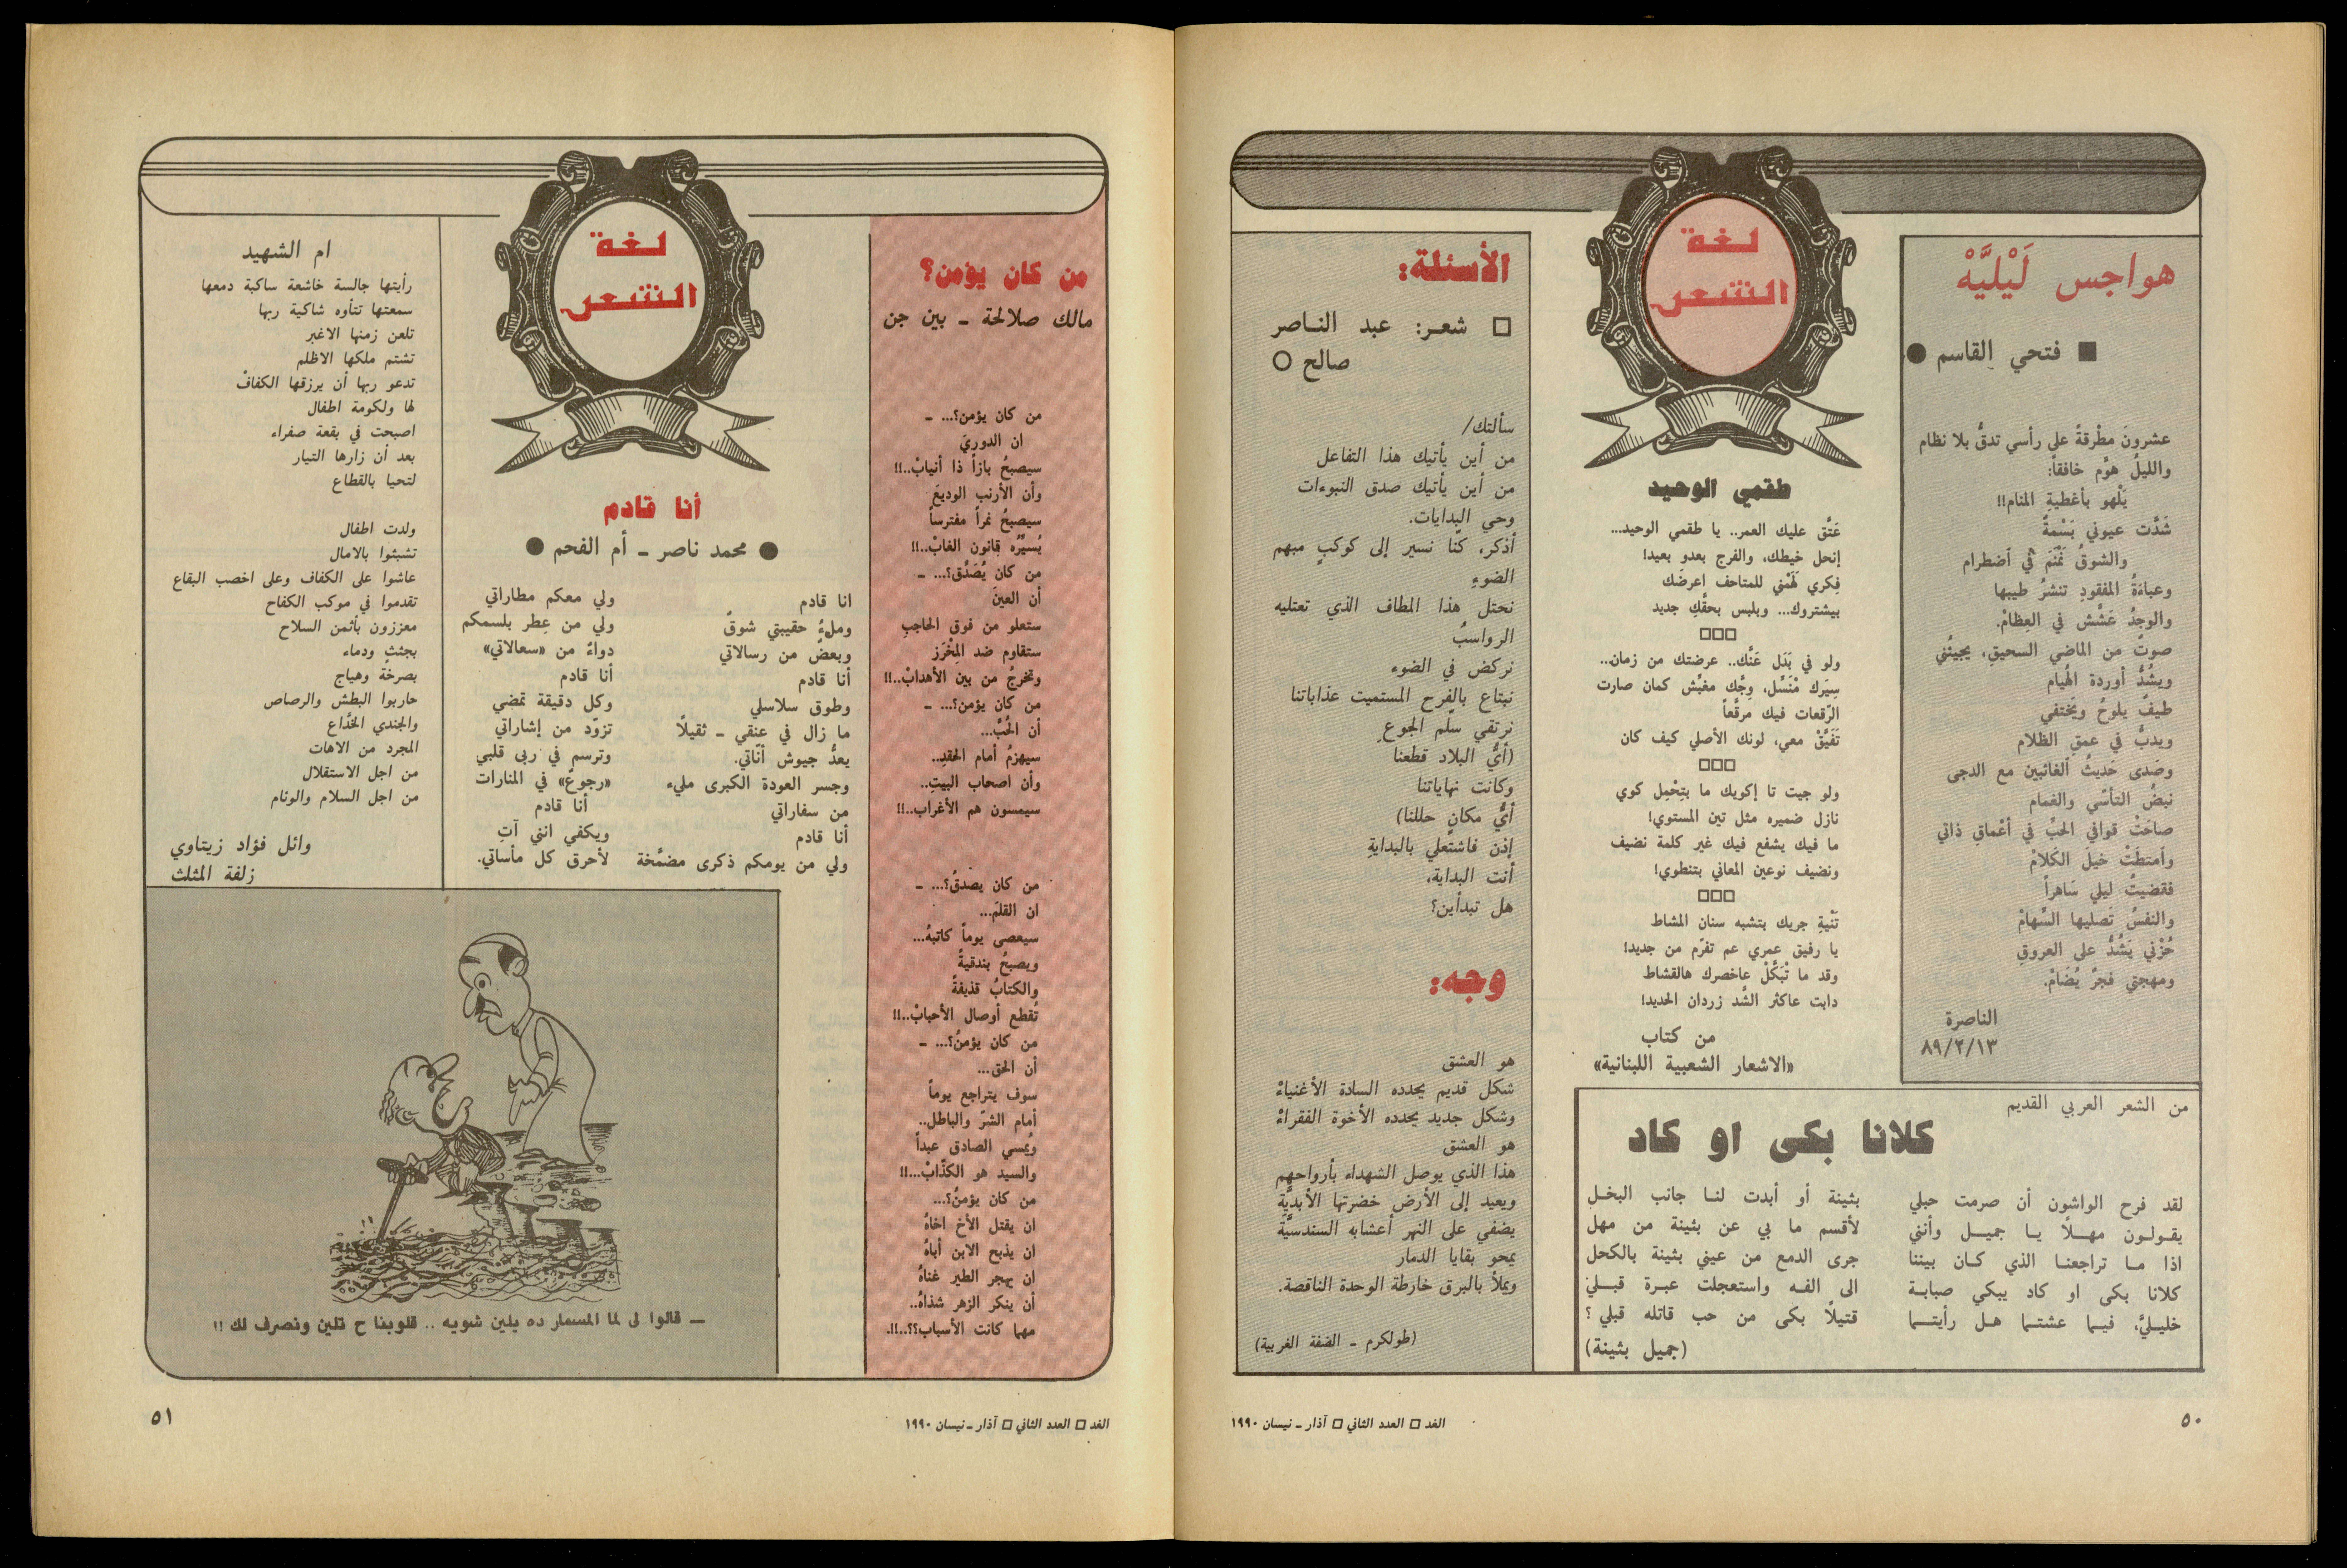 هواجس لَيْليَّهْ
■ فتحي القاسم ●
عشرونَ مطْرقةً على رأسي تدقُّ بلا نظام
والليلُ هوَّم خافقاً:
يَلْهو بأغطيةِ المنام!!
شَدَّت عيوني بَسْمةً
والشوقُ نَمْنَمَ في أضطرام
وعباءَةُ المفقودِ تنشرُ طيبها
والوجدُ عَشَّشَ في العِظامْ.
صوتٌ من الماضي السحيقِ، يجيئُني
ويشُدُّ أوردة الهُيام
طيفٌ يلوحُ ويَختفي
ويدبُّ في عمقِ الظلام
وصَدى حَديثُ ألغائبين مع الدجى
نبضُ التأسّي والغمام
صاحَتْ قوافي الحبِّ في أعْماقِ ذاتي
وأمتطَتْ خيلَ الكَلامْ
فقضيتُ ليلي سَاهراً
والنفسُ تَصليها السِّهامْ
حُزْني يَشُدُّ على العروقِ
ومهجتي فجرٌ يُضَامْ.
الناصرة
٨٩/٢/١٣
لغة
الشعر
طقمي الوحيد
عَتَّق عليك العمر.. يا طقمي الوحيد...
إنحل خيطك، والفرج بعدو بعيد!
فِكري لَهْمْني للمتاحف اعرضَك
بيشتروك... وبلبس بحقَّكِ جديد
□□□
ولو في بَدَل عَنَّك.. عرضتك من زمان..
سِيَرك مْنَسَّل، وجَّك مغبَّش كمان صارت
الرّقعات فيك مَرقَّعاً
تَفَيَّقْ معي، لونك الأصلي كيف كان
□□□
ولو جيت تا إكويك ما بتِحْمِل كوي
نازل ضميره مثل تين المستوي!
ما فيك يشفع فيك غير كلمة نضيف
ونضيف نوعين المعاني بتنطوي!
□□□
تَنْيةِ جريك بتشبه سنان المشاط
يا رفيق عمري عم تفرّم من جديد!
وقد ما تْبَكَّلْ عاخصرك هالقشاط
دابت عاكثر الشَّد زردان الحديد!
من كتاب
«الاشعار الشعبية اللبنانية»
الأسئلة:
□ شعر: عبد الناصر
صالح ○
سألتك/
من أين يأتيك هذا التفاعل
من أين يأتيك صدق النبوءات
وحي البدايات.
أذكر، كنّا نسير إلى كوكبٍ مبهم
الضوءِ
نحتل هذا المطاف الذي تعتليه
الرواسبُ
نركض في الضوء
نبتاع بالفرح المستميت عذاباتنا
نرتقي سلّم الجوعِ
(أيُّ البلاد قطعنا
وكانت نهاياتنا
أيُّ مكانٍ حللنا)
إذن فاشتعلي بالبدايةِ
أنت البداية،
هل تبدأين؟
وجه:
هو العشق
شكل قديم يحدده السادة الأغنياءْ
وشكل جديد يحدده الأخوة الفقراءْ
هو العشق
هذا الذي يوصل الشهداء بأرواحهم
ويعيد إلى الأرض خضرتها الأبديَّةِ
يضفي على النهر أعشابه السندسيَّة
يمحو بقايا الدمار
ويملأ بالبرق خارطة الوحدة الناقصة.
(طولكرم - الضفة الغربية)
من الشعر العربي القديم
كلانا بكى او كاد
لقد فرح الواشون أن صرمت حبلي
بثينة أو أبدت لنا جانب البخل
يقولون مهلاً يا جميل وأنني
لأقسم ما بي عن بثينة من مهل
اذا ما تراجعنا الذي كان بيننا
جرى الدمع من عيني بثينة بالكحل
كلانا بكى او كاد يبكي صبابة
الى الفه واستعجلت عبرة قبلي
خليليَّ، فيما عشتما هل رأيتما
قتيلاً بكى من حب قاتله قبلي؟
(جميل بثينة)
٥٠
الغد □ العدد الثاني □ آذار - نيسان ١٩٩٠
من كان يؤمن؟
مالك صلالحة - بين جن
من كان يؤمن؟... -
ان الدوريَ
سيصبحُ بازاً ذا أنيابْ..!!
وأن الأرنب الوديعَ
سيصبحُ نمراً مفترساً
يُسيِّرُه قانون الغابْ..!!
من كان يُصَدِّق؟... -
أن العينَ
ستعلو من فوق الحاجبِ
ستقاوم ضد المِخْرَز
وتخرجُ من بين الأهدابْ..!!
من كان يؤمن؟... -
أن الحُبَّ...
سيهزمُ أمام الحقدِ..
وأن اصحاب البيتِ..
سيمسون هم الأغراب..!!
من كان يصدقُ؟... -
ان القلمَ...
سيعصى يوماً كاتبهُ...
ويصبحُ بندقيةً
والكتابُ قذيفةً
تُقطع أوصال الأحبابْ..!!
من كان يؤمنُ؟... -
أن الحق...
سوف يتراجع يوماً
أمام الشرّ والباطل..
ويُمسي الصادق عبداً
والسيد هو الكذّابْ...!!
من كان يؤمنُ؟...
ان يقتل الأخ اخاهُ
ان يذبح الابن أباهُ
ان يهجر الطير غناهُ
أن ينكر الزهر شذاهُ..
مهما كانت الأسباب؟؟..!!.
لغة
الشعر
أنا قادم
● محمد ناصر - أم الفحم ●
انا قادم
وملءُ حقيبتي شوقٌ
وبعضٌ من رسالاتي
أنا قادم
وطوق سلاسلي
ما زال في عنقي - ثقيلاً
يعدُّ جيوش أنّاتي.
وجسر العودة الكبرى مليء
من سفاراتي
أنا قادم
ولي من يومكم ذكرى مضمَّخة
ولي معكم مطاراتي
ولي من عِطر بلسمكم
دواءً من «سعالاتي»
أنا قادم
وكل دقيقة تمضي
تزوّد من إشاراتي
وترسم في ربى قلبي
«رجوعٌ» في المنارات
أنا قادم
ويكفي انني آتٍ
لأحرق كل مأساتي.
ام الشهيد
رأيتها جالسة خاشعة ساكبة دمعها
سمعتها تتأوه شاكية ربها
تلعن زمنها الاغبر
تشتم ملكها الاظلم
تدعو ربها أن يرزقها الكفافْ
لها ولكومة اطفال
اصبحت في بقعة صفراء
بعد أن زارها التيار
لتحيا بالقطاع
ولدت اطفال
تشبثوا بالامال
عاشوا على الكفاف وعلى اخصب البقاع
تقدموا في موكب الكفاح
معززون بأثمن السلاح
بجثثٍ ودماء
بصرخة وهياج
حاربوا البطش والرصاص
والجندي الخدَّاع
المجرد من الاهات
من اجل الاستقلال
من اجل السلام والوئام
وائل فؤاد زيتاوي
زلفة المثلث
— قالوا لى لما المسمار ده يلين شويه .. قلوبنا ح تلين ونصرف لك !!
الغد □ العدد الثاني □ آذار - نيسان ١٩٩٠
٥١